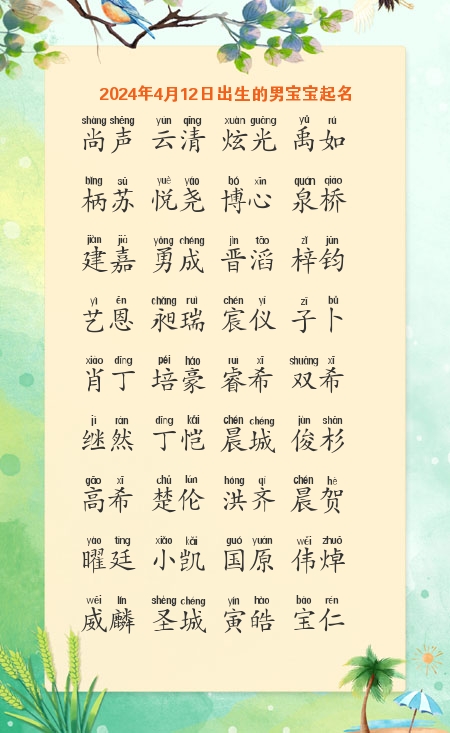 2024年4月12日出生的男宝宝起名
shàng shēng yún qīng xuàn guāng yǔ rú
尚声 云清 炫光 禹如
bǐng sū yuè yáo bó xīn quán qiáo
柄苏 悦尧 博心 泉桥
jiàn jiā yǒng chéng jìn tāo zǐ jūn
建嘉 勇成 晋滔 梓钧
yì ēn chǎng ruì chén yí zǐ bǔ
艺恩 昶瑞 宸仪 子卜
xiào dīng péi háo ruì xī shuāng xī
肖丁 培豪 睿希 双希
jì rán dīng kǎi chén chéng jùn shān
继然 丁恺 晨城 俊杉
gāo xī chǔ lún hóng qí chén hè
高希 楚伦 洪齐 晨贺
yào tíng xiǎo kǎi guó yuán wěi zhuō
曜廷 小凯 国原 伟焯
wēi lín shèng chéng yín hào bǎo rén
威麟 圣城 寅皓 宝仁